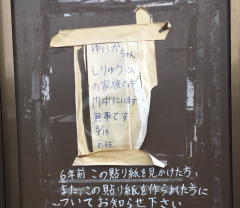 ゆいかちゃん
しりゅうくん
お家族の方
内中にいます
無事です
3/13
6年前この貼り紙を見かけた方、
また、この貼り紙を作られた方に
ついてお知らせ下さい